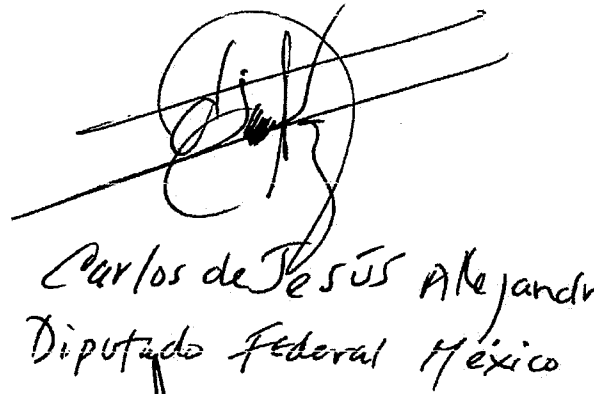 Carlos de Jesús Alejandr
Diputado Federal México